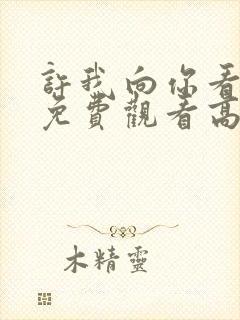 許我向你看
免費觀看高
木精靈